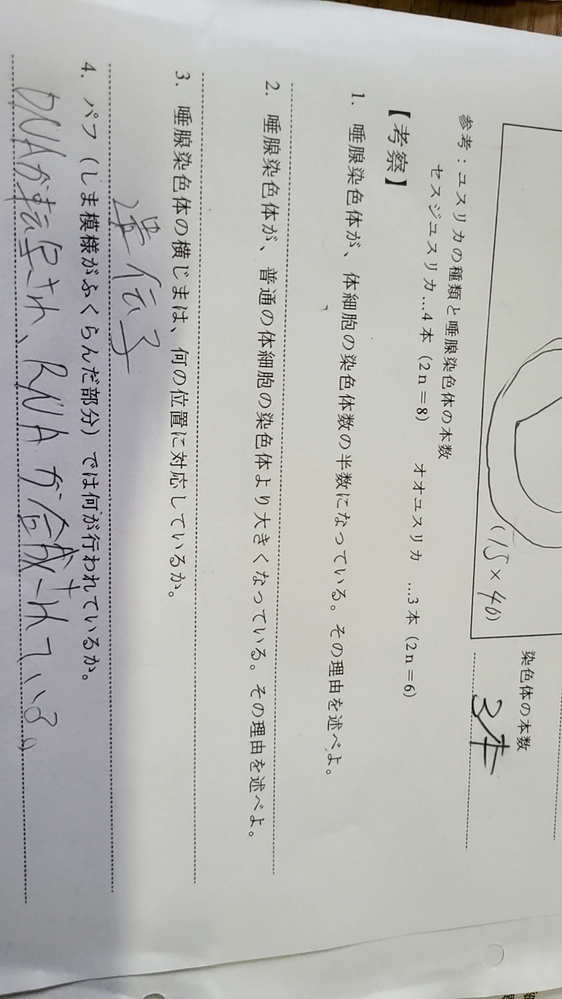 (15×40)
染色体の本数
3本
参考：ユスリカの種類と唾腺染色体の本数
セスジユスリカ…4本（2n＝8） オオユスリカ …3本（2n＝6）
【考察】
1. 唾腺染色体が、体細胞の染色体数の半数になっている。その理由を述べよ。
2. 唾腺染色体が、普通の体細胞の染色体より大きくなっている。その理由を述べよ。
3. 唾腺染色体の横じまは、何の位置に対応しているか。
遺伝子
4. パフ（しま模様がふくらんだ部分）では何が行われているか。
DNAが転写され、RNAが合成されている。